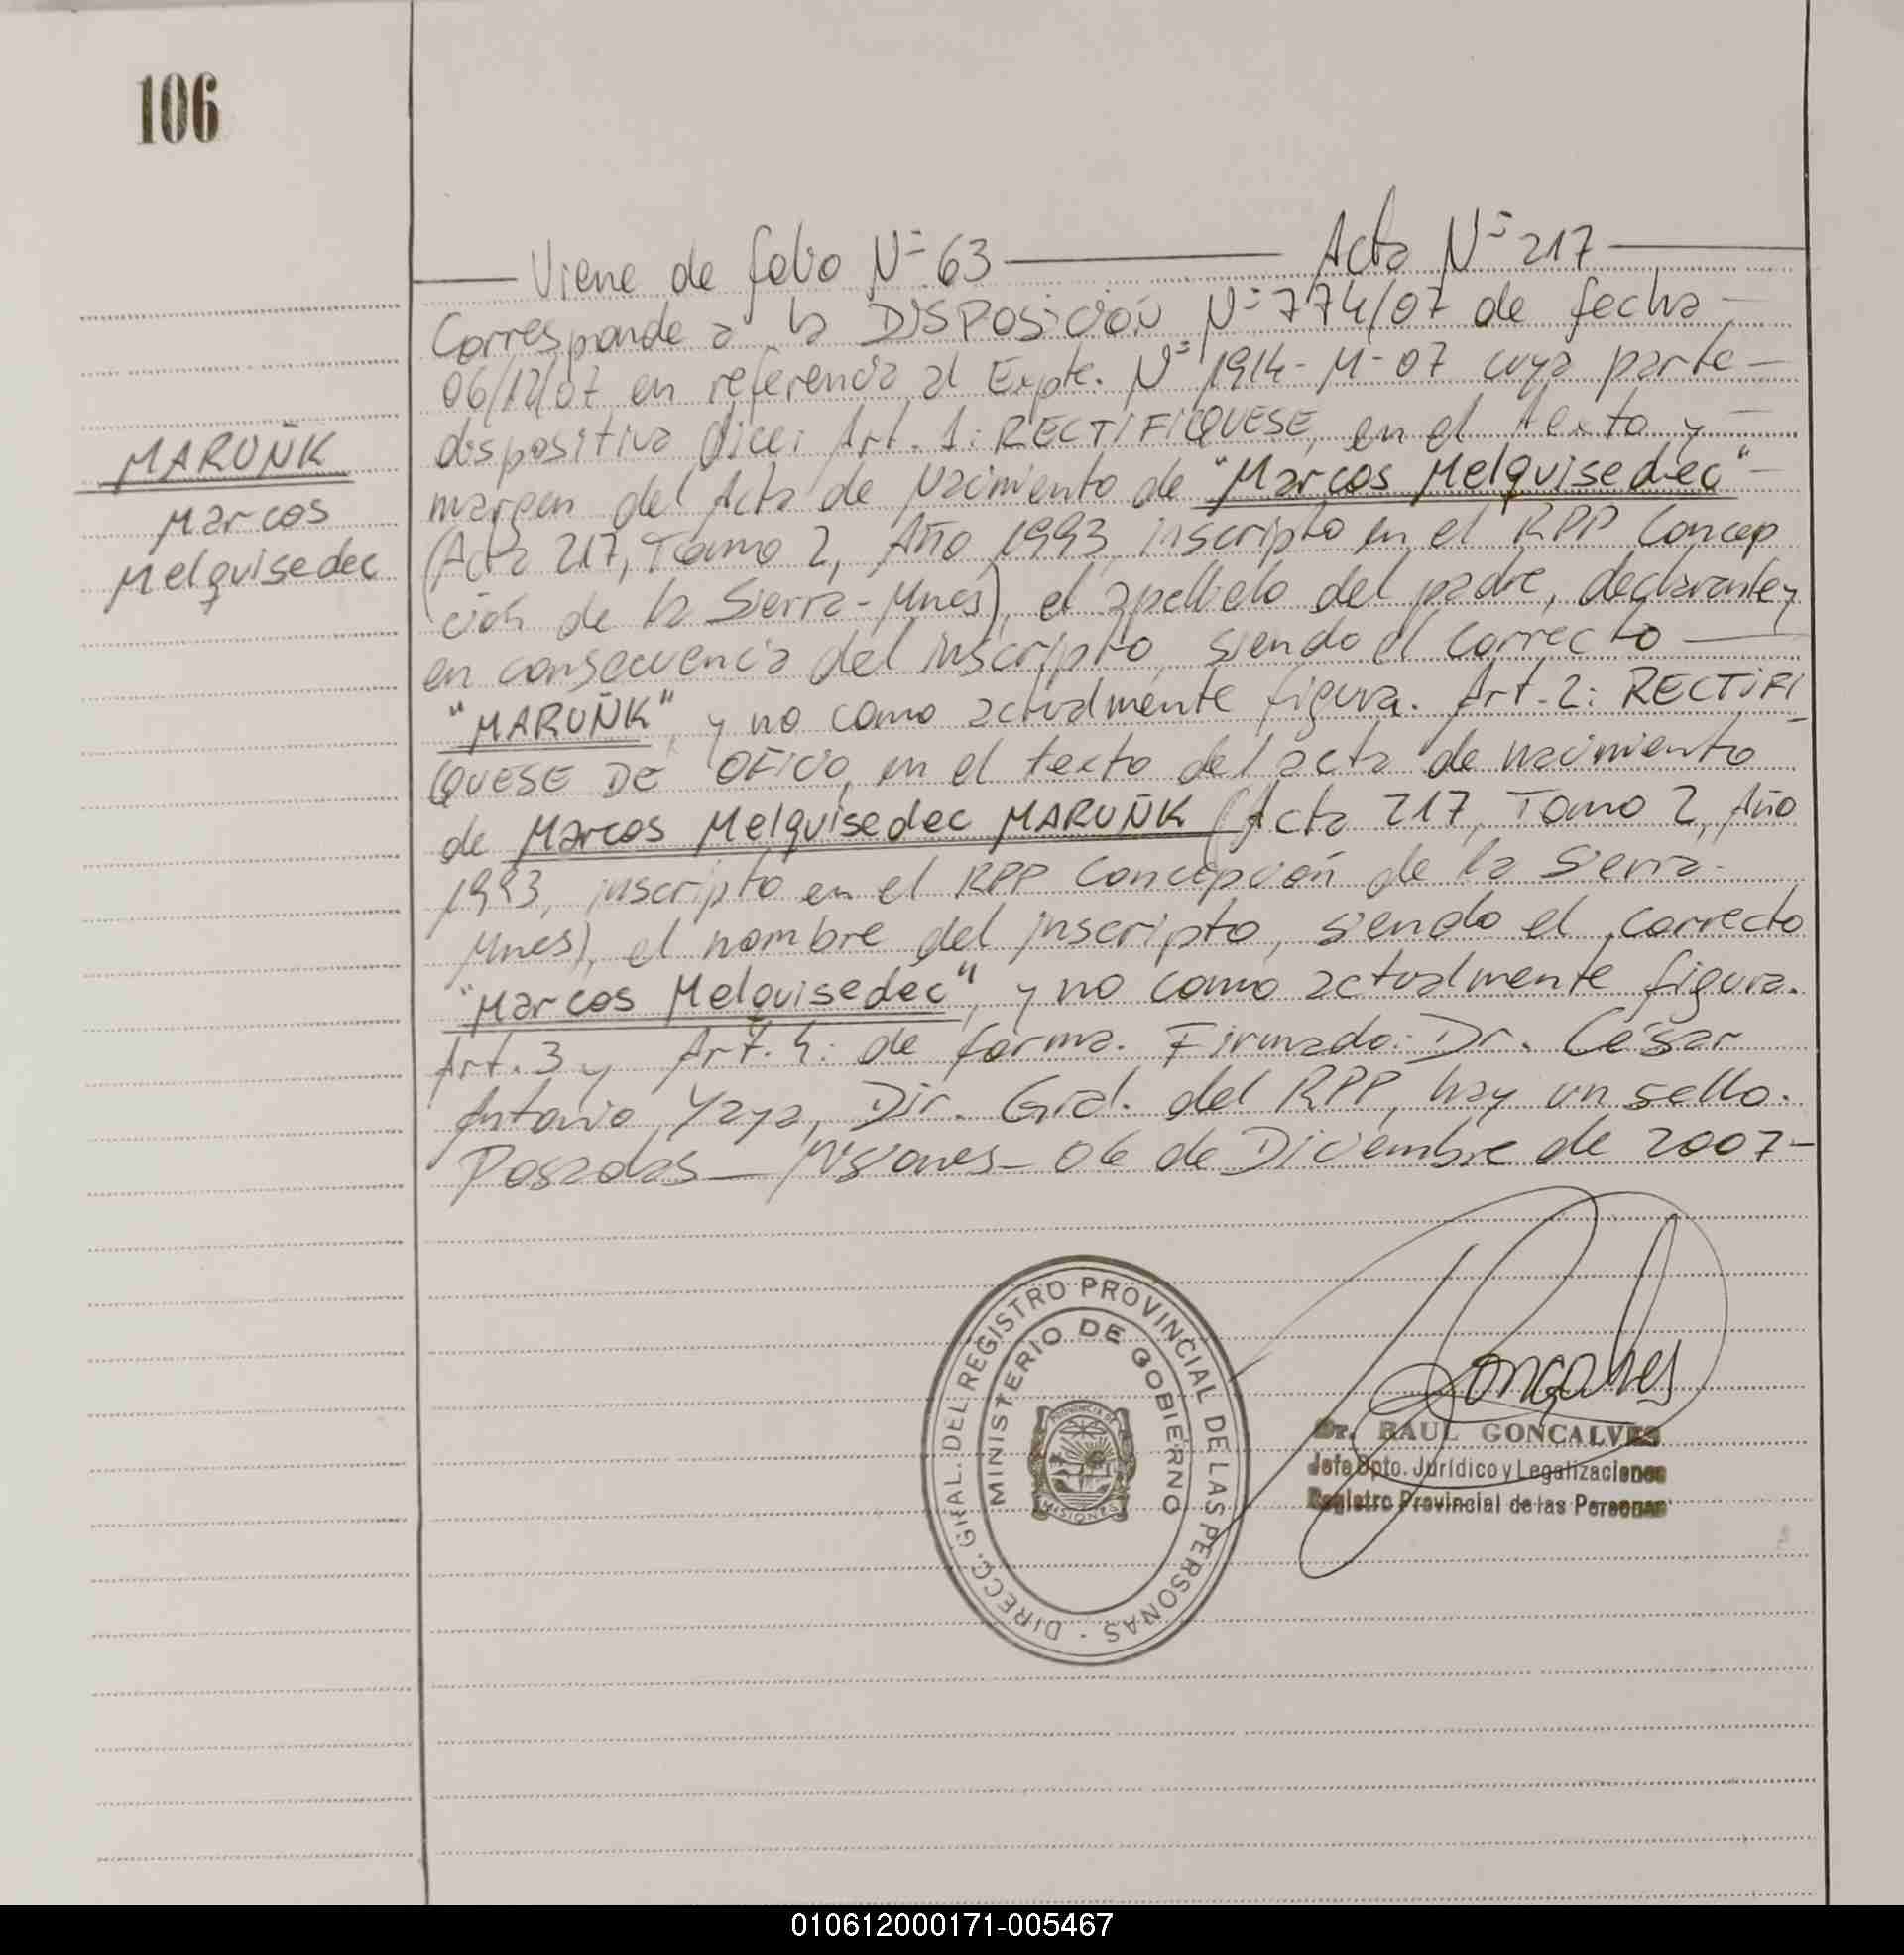 106
Viene de folio Nº 63 Acta Nº 217
Corresponde a la DISPOSICIÓN Nº 774/07 de fecha
06/12/07 en referencia al Expte. Nº 1914-M-07 cuya parte
dispositiva dice: Art. 1: RECTIFIQUESE, en el texto y
margen del Acta de Nacimiento de "Marcos Melquisedec"
(Acta 217, Tomo 2, Año 1993, inscripto en el RPP Concep
ción de la Sierra - Mnes), el apellido del padre, declarante y
en consecuencia del inscripto, siendo el correcto
"MARUÑK", y no como actualmente figura. Art. 2: RECTIFI
QUESE DE OFICIO, en el texto del acta de nacimiento
de Marcos Melquisedec MARUÑK (Acta 217, Tomo 2, Año
1993, inscripto en el RPP Concepción de la Sierra -
Mnes), el nombre del inscripto, siendo el correcto
"Marcos Melquisedec", y no como actualmente figura.
Art. 3 y Art. 4: de forma. Firmado: Dr. César
Antonio Yaya, Dir. Gral. del RPP, hay un sello.
Posadas - Misiones - 06 de Diciembre de 2007 -
MARUÑK
Marcos
Melquisedec
DIRECC. GRAL. DEL REGISTRO PROVINCIAL DE LAS PERSONAS
MINISTERIO DE GOBIERNO
PROVINCIA DE
MISIONES
Gonçalves
Dr. RAUL GONÇALVES
Jefe Dpto. Jurídico y Legalizaciones
Registro Provincial de las Personas
010612000171-005467